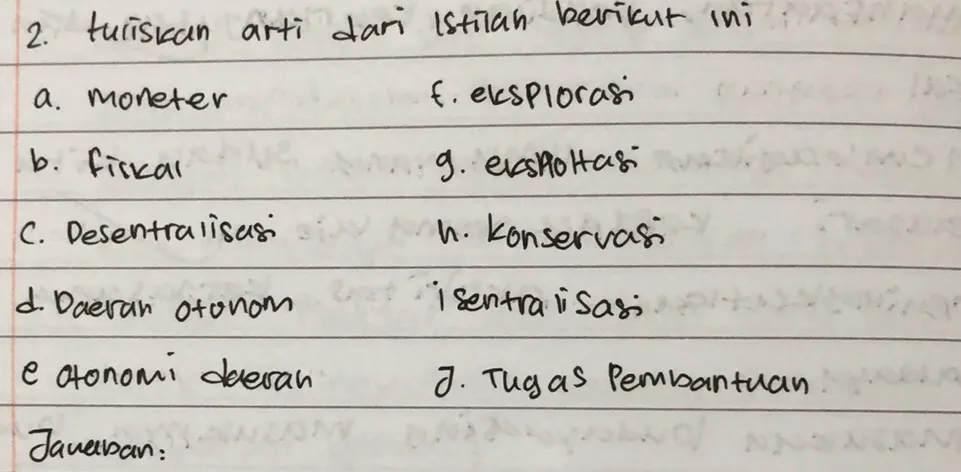 2. tuliskan arti dari Istilah berikut ini
a. moneter f. eksplorasi
b. fiskal g. eksploitasi
c. Desentralisasi h. konservasi
d. Daerah otonom i sentralisasi
e otonomi daerah J. Tugas Pembantuan
Jawaban: